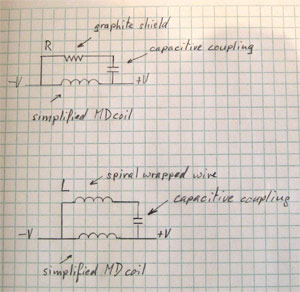 graphite shield
R
capacitive coupling
-V
+V
simplified MD coil
spiral wrapped wire
L
capacitive coupling
-V
+V
simplified MD coil